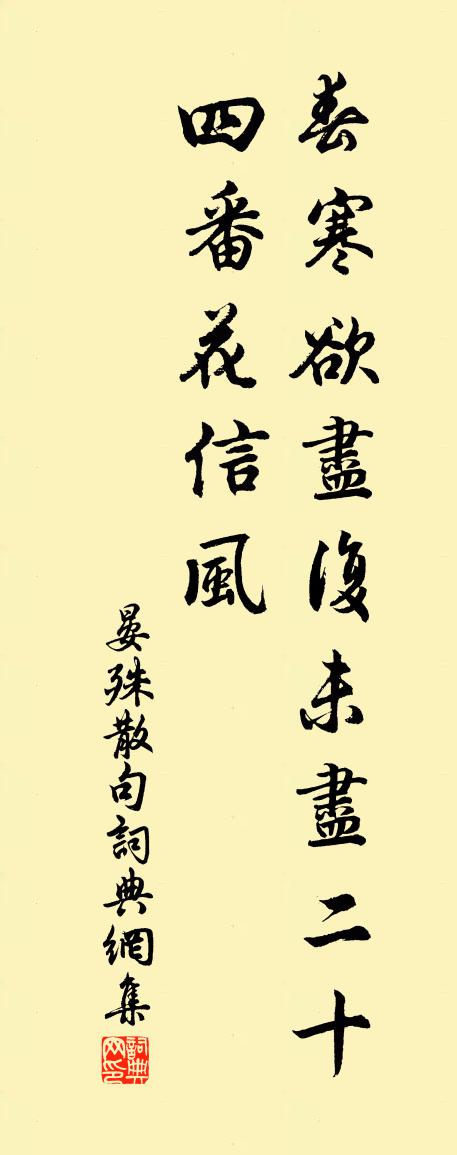 春寒欲盡復未盡二十
四番花信風
晏殊散句詞典網集
詞典
网印